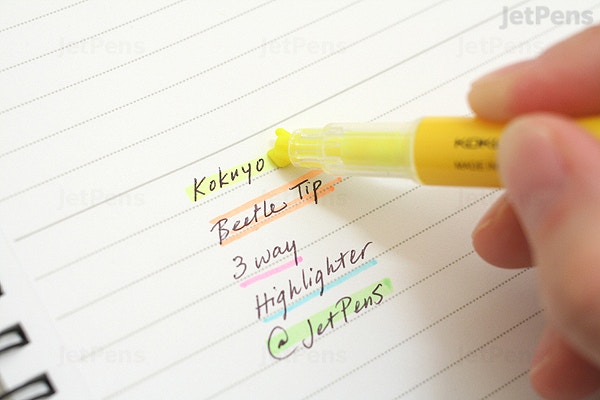 JetPens
Kokuyo
Beetle Tip
3 way
Highlighter
@ JetPens